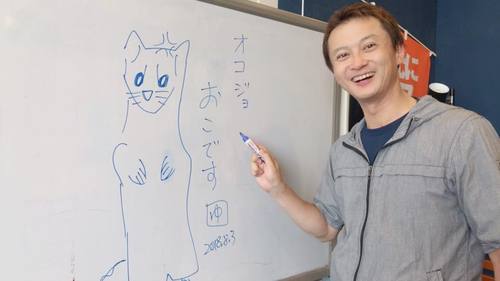 オコジョ
おこです
ゆ
2018.8.3